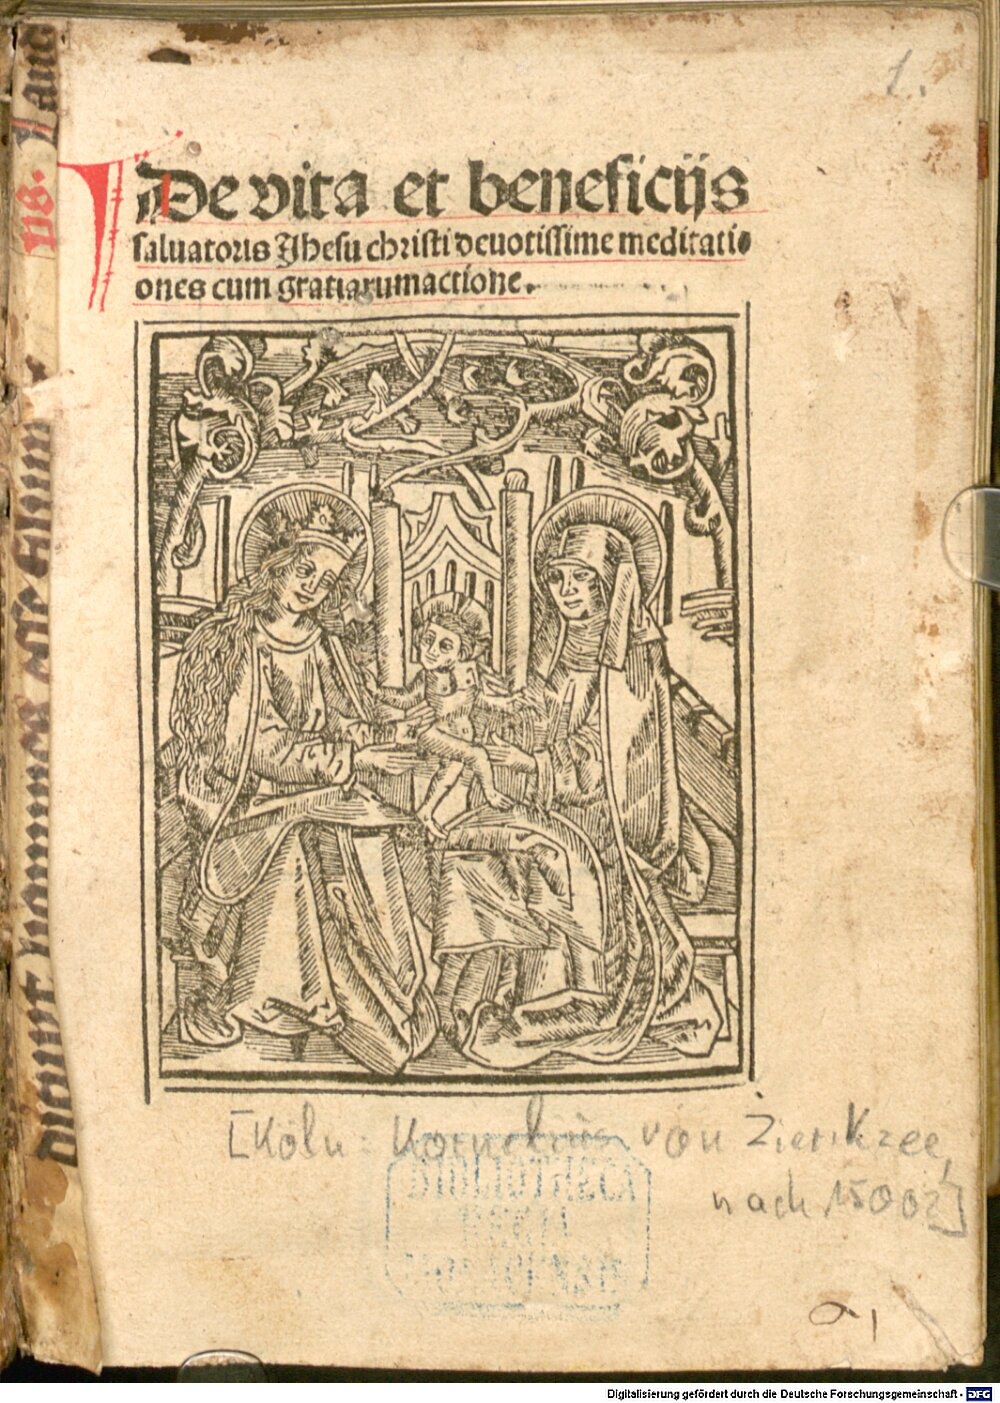 1.
De vita et beneficijs
saluatoris Jhesu christi deuotissime meditati⸗
ones cum gratiarumactione.
[Köln: Kornelius von Zierikzee,
nach 1500?]
BIBLIOTHECA
REGIA
MONACENSIS
Digitalisierung gefördert durch die Deutsche Forschungsgemeinschaft - DFG